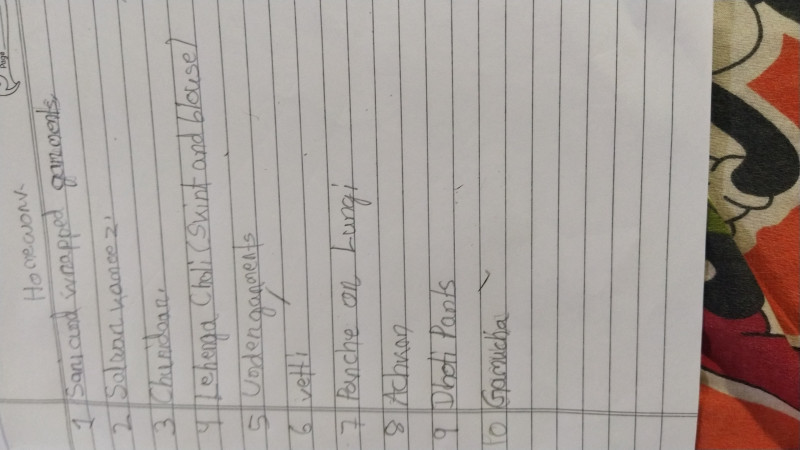 Page
Homework
1 Sari and wrapped garments
2 Salwar kameez
3 Churidaar
4 Lehenga Choli (Skirt and blouse)
5 Undergarments
6 vetti
7 Panche or Lungi
8 Achkan
9 Dhoti Pants
10 Gamucha